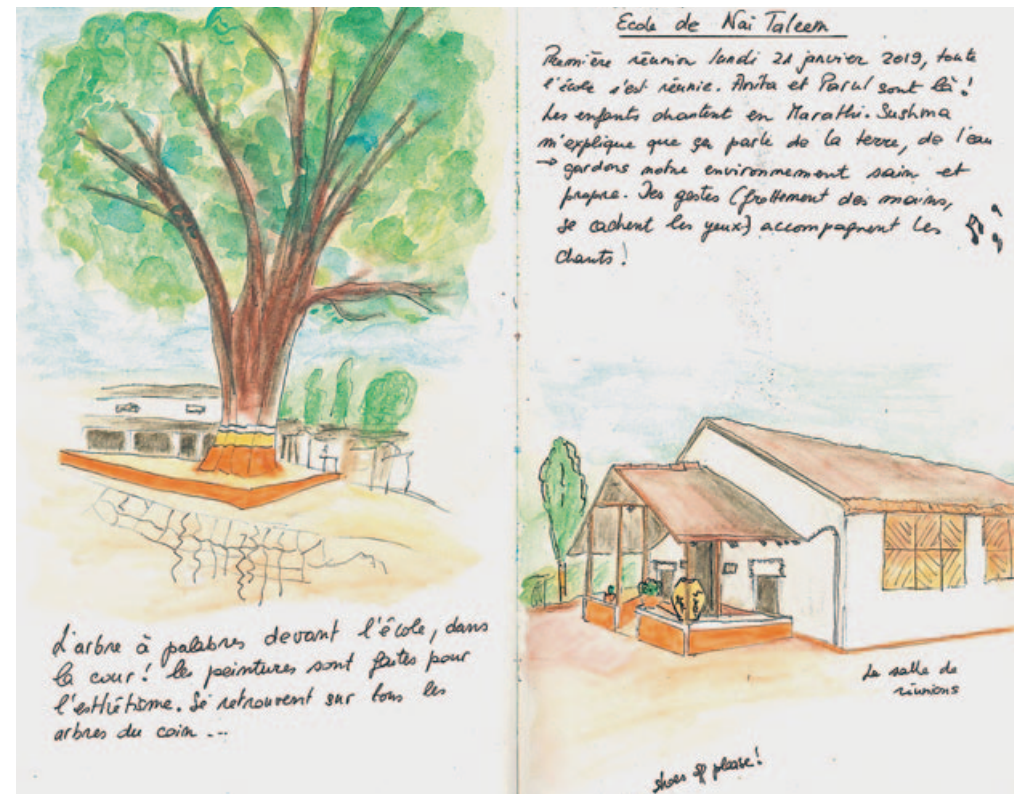 L'arbre à palabres devant l'école, dans
la cour ! les peintures sont faites pour
l'esthétisme. Se retrouvent sur tous les
arbres du coin ...
Ecole de Nai Taleem
Première réunion lundi 21 janvier 2019, toute
l'école s'est réunie. Anita et Parul sont là !
Les enfants chantent en Marathi. Sushma
m'explique que ça parle de la terre, de l'eau
→ gardons notre environnement sain et
propre. Des gestes (frottement des mains,
se cachent les yeux) accompagnent les
chants !
La salle de
réunions
shoes off please !